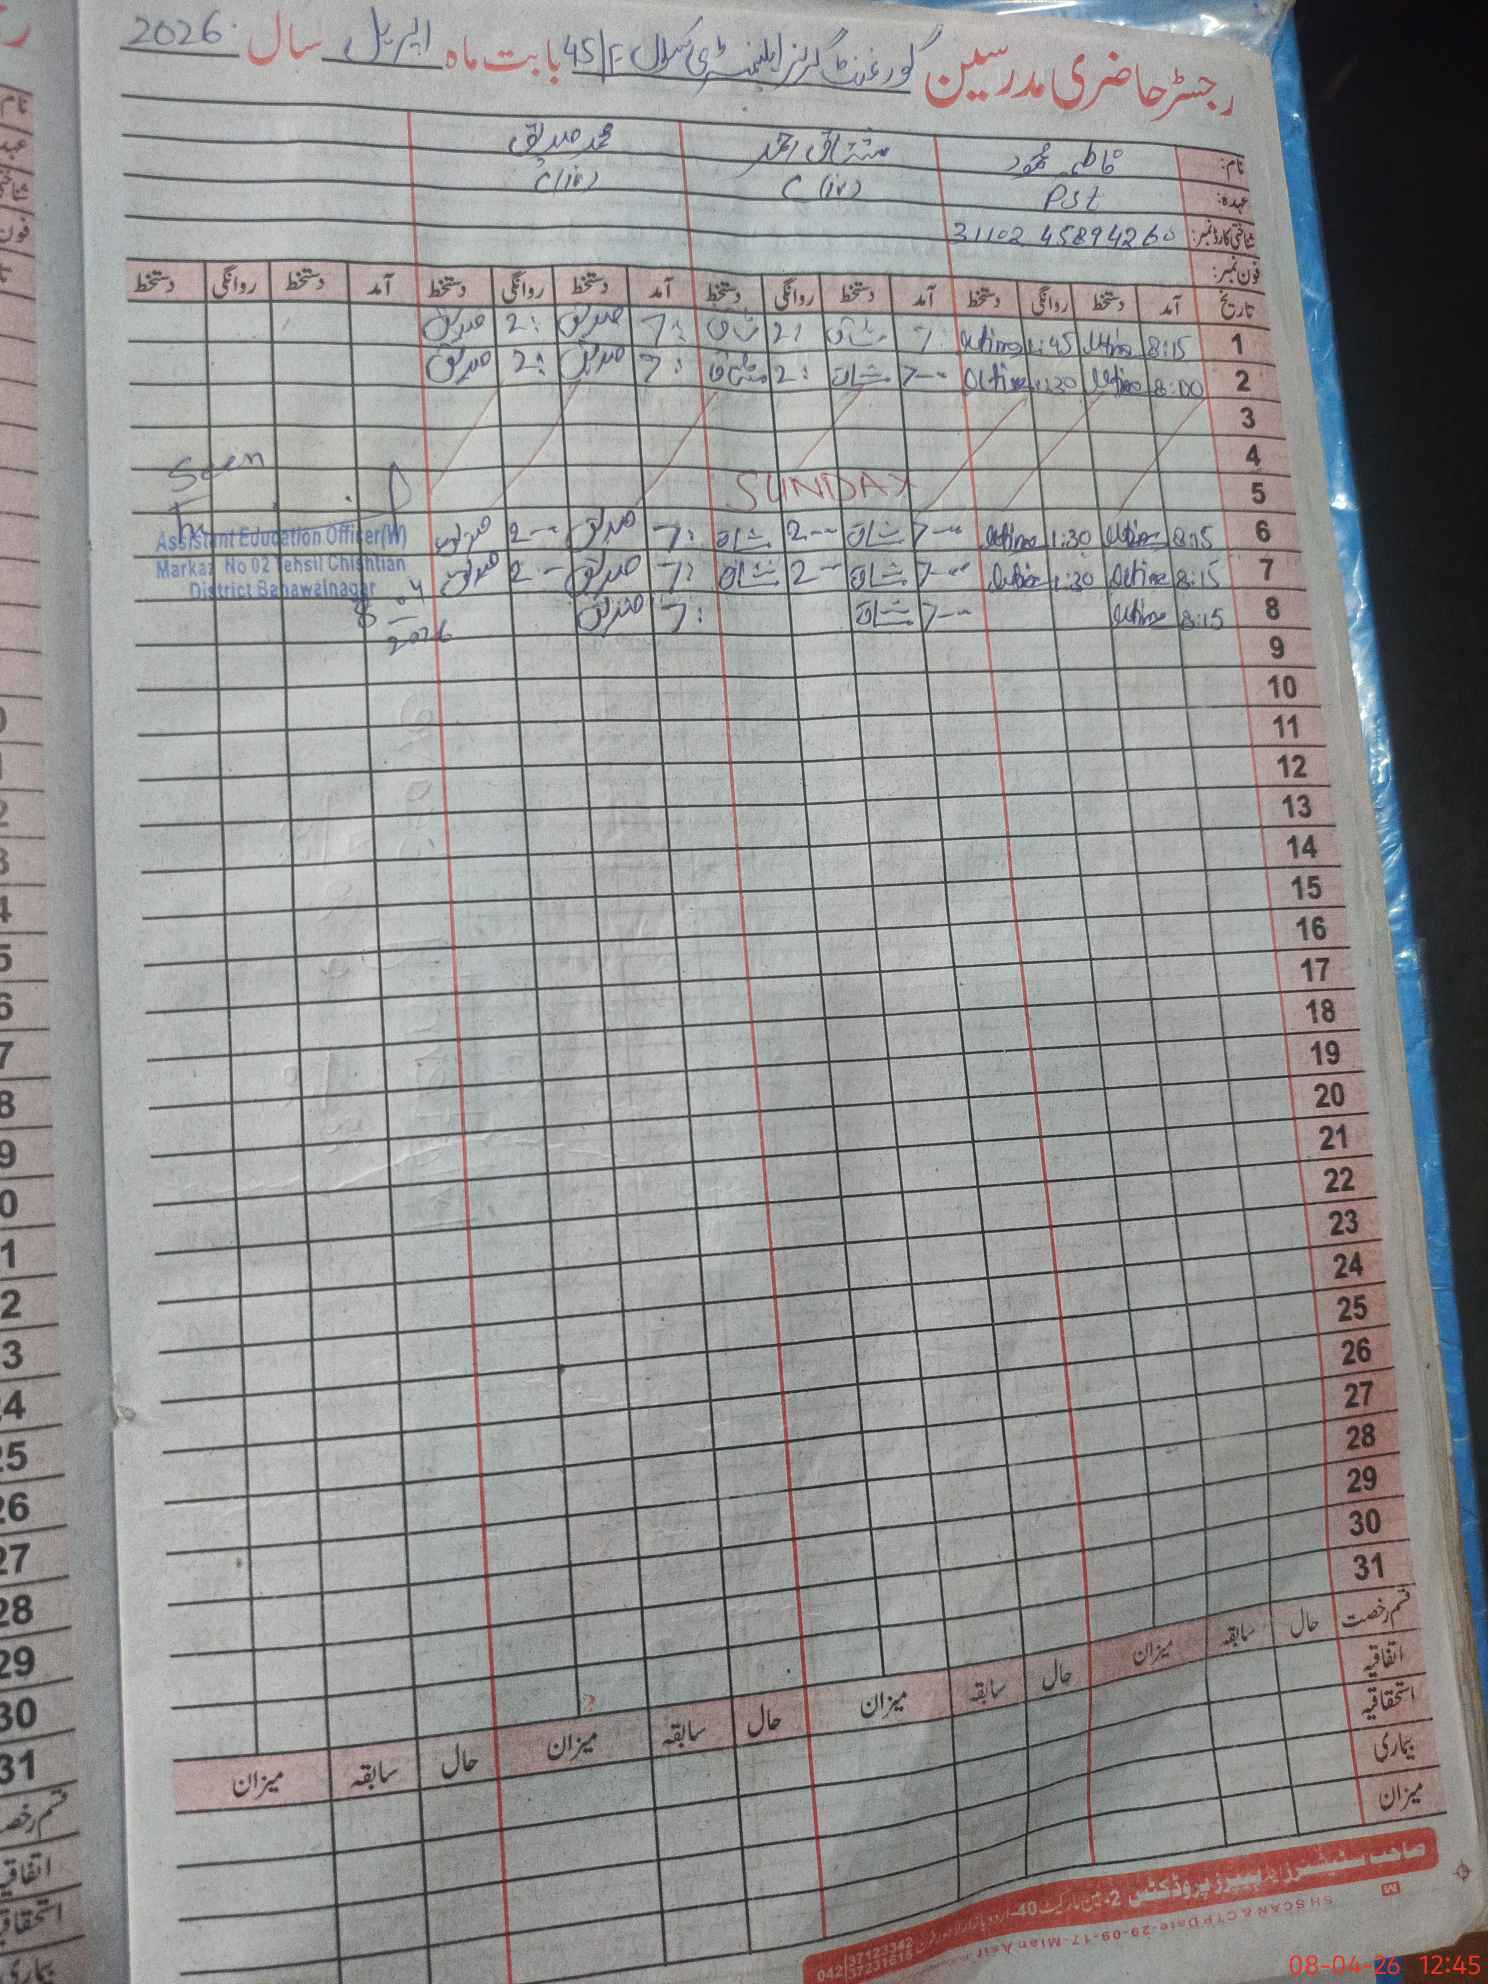 رجسٹر حاضری مدرسین گورنمنٹ گرلز ایلیمنٹری سکول 45/F بابت ماہ اپریل سال 2026
نام: مشتاق احمد محمد صدیق
عہدہ: PST C(iv) C(iv)
شناختی کارڈ نمبر: 31102 45894260
فون نمبر:
تاریخ آمد دستخط روانگی دستخط آمد دستخط روانگی دستخط آمد دستخط روانگی دستخط آمد دستخط روانگی دستخط
1 8:15 1:45 7: مشتاق 2: مشتاق 7: صدیق 2: صدیق
2 8:00 1:30 7-- مشتاق 2: مشتاق 7: صدیق 2: صدیق
3
4
5 SUNDAY
6 8:15 1:30 7-- مشتاق 2-- مشتاق 7: صدیق 2-- صدیق
7 8:15 1:30 7-- مشتاق 2-- مشتاق 7: صدیق 2-- صدیق
8 8:15 7-- مشتاق 7: صدیق
Seen
Assistant Education Officer(W)
Markaz No 02 Tehsil Chishtian
District Bahawalnagar
8-04
2026
9
10
11
12
13
14
15
16
17
18
19
20
21
22
23
24
25
26
27
28
29
30
31
قسم رخصت حال سابقہ میزان حال سابقہ میزان حال سابقہ میزان حال سابقہ میزان
اتفاقیہ
استحقاقیہ
بیماری
میزان
صاحب سٹیشنرز پیپرز پروڈکٹس 2-مین مارکیٹ 40-اردو بازار لاہور
042 37123342
37231615
SH SCAN & CTP Date-29-09-17-Mian Asif
08-04-26 12:45